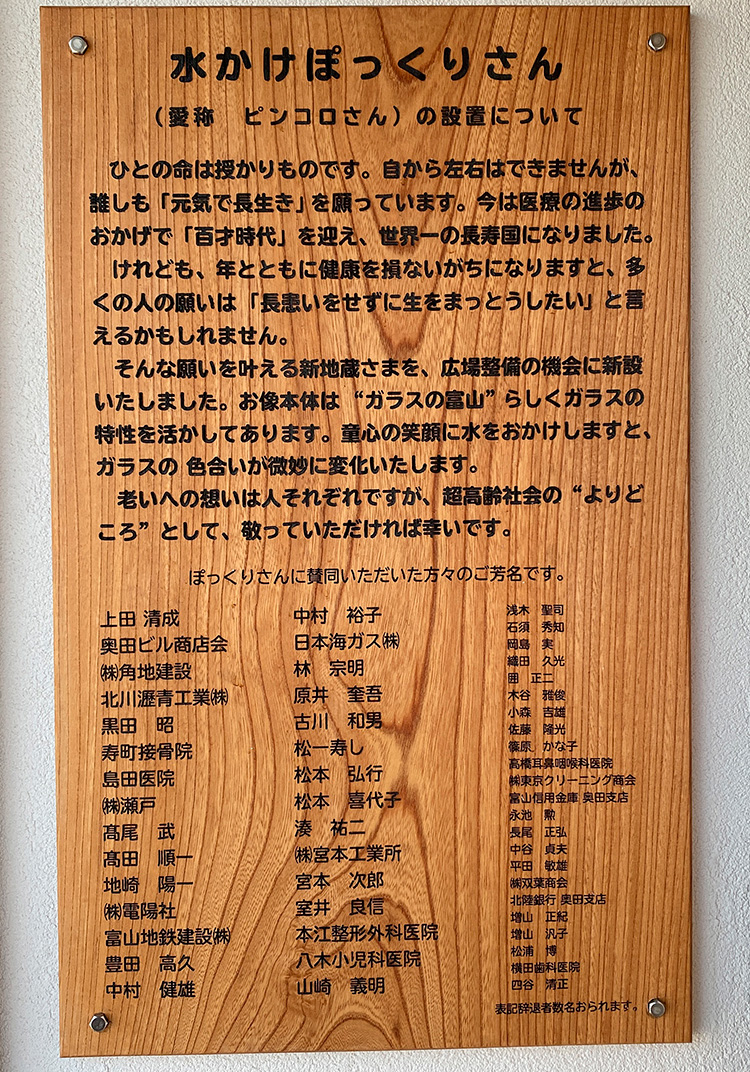 水かけぽっくりさん
（愛称　ピンコロさん）の設置について
ひとの命は授かりものです。自から左右はできませんが、
誰しも「元気で長生き」を願っています。今は医療の進歩の
おかげで「百才時代」を迎え、世界一の長寿国になりました。
けれども、年とともに健康を損ないがちになりますと、多
くの人の願いは「長患いをせずに生をまっとうしたい」と言
えるかもしれません。
そんな願いを叶える新地蔵さまを、広場整備の機会に新設
いたしました。お像本体は“ガラスの富山”らしくガラスの
特性を活かしてあります。童心の笑顔に水をおかけしますと、
ガラスの 色合いが微妙に変化いたします。
老いへの想いは人それぞれですが、超高齢社会の“よりど
ころ”として、敬っていただければ幸いです。
ぽっくりさんに賛同いただいた方々のご芳名です。
上田 清成
奥田ビル商店会
㈱角地建設
北川瀝青工業㈱
黒田　昭
寿町接骨院
島田医院
㈱瀬戸
髙尾　武
髙田　順一
地崎　陽一
㈱電陽社
富山地鉄建設㈱
豊田　高久
中村　健雄
中村　裕子
日本海ガス㈱
林　宗明
原井　奎吾
古川　和男
松一寿し
松本　弘行
松本　喜代子
湊　祐二
㈱宮本工業所
宮本　次郎
室井　良信
本江整形外科医院
八木小児科医院
山崎　義明
浅木　聖司
石須　秀知
岡島　実
織田　久光
囲　正二
木谷　雅俊
小森　吉雄
佐藤　隆光
篠原　かな子
高橋耳鼻咽喉科医院
㈱東京クリーニング商会
富山信用金庫 奥田支店
永池　勲
長尾　正弘
中谷　貞夫
平田　敏雄
㈱双葉商会
北陸銀行 奥田支店
増山　正紀
増山　汎子
松浦　博
横田歯科医院
四谷　清正
表記辞退者数名おられます。